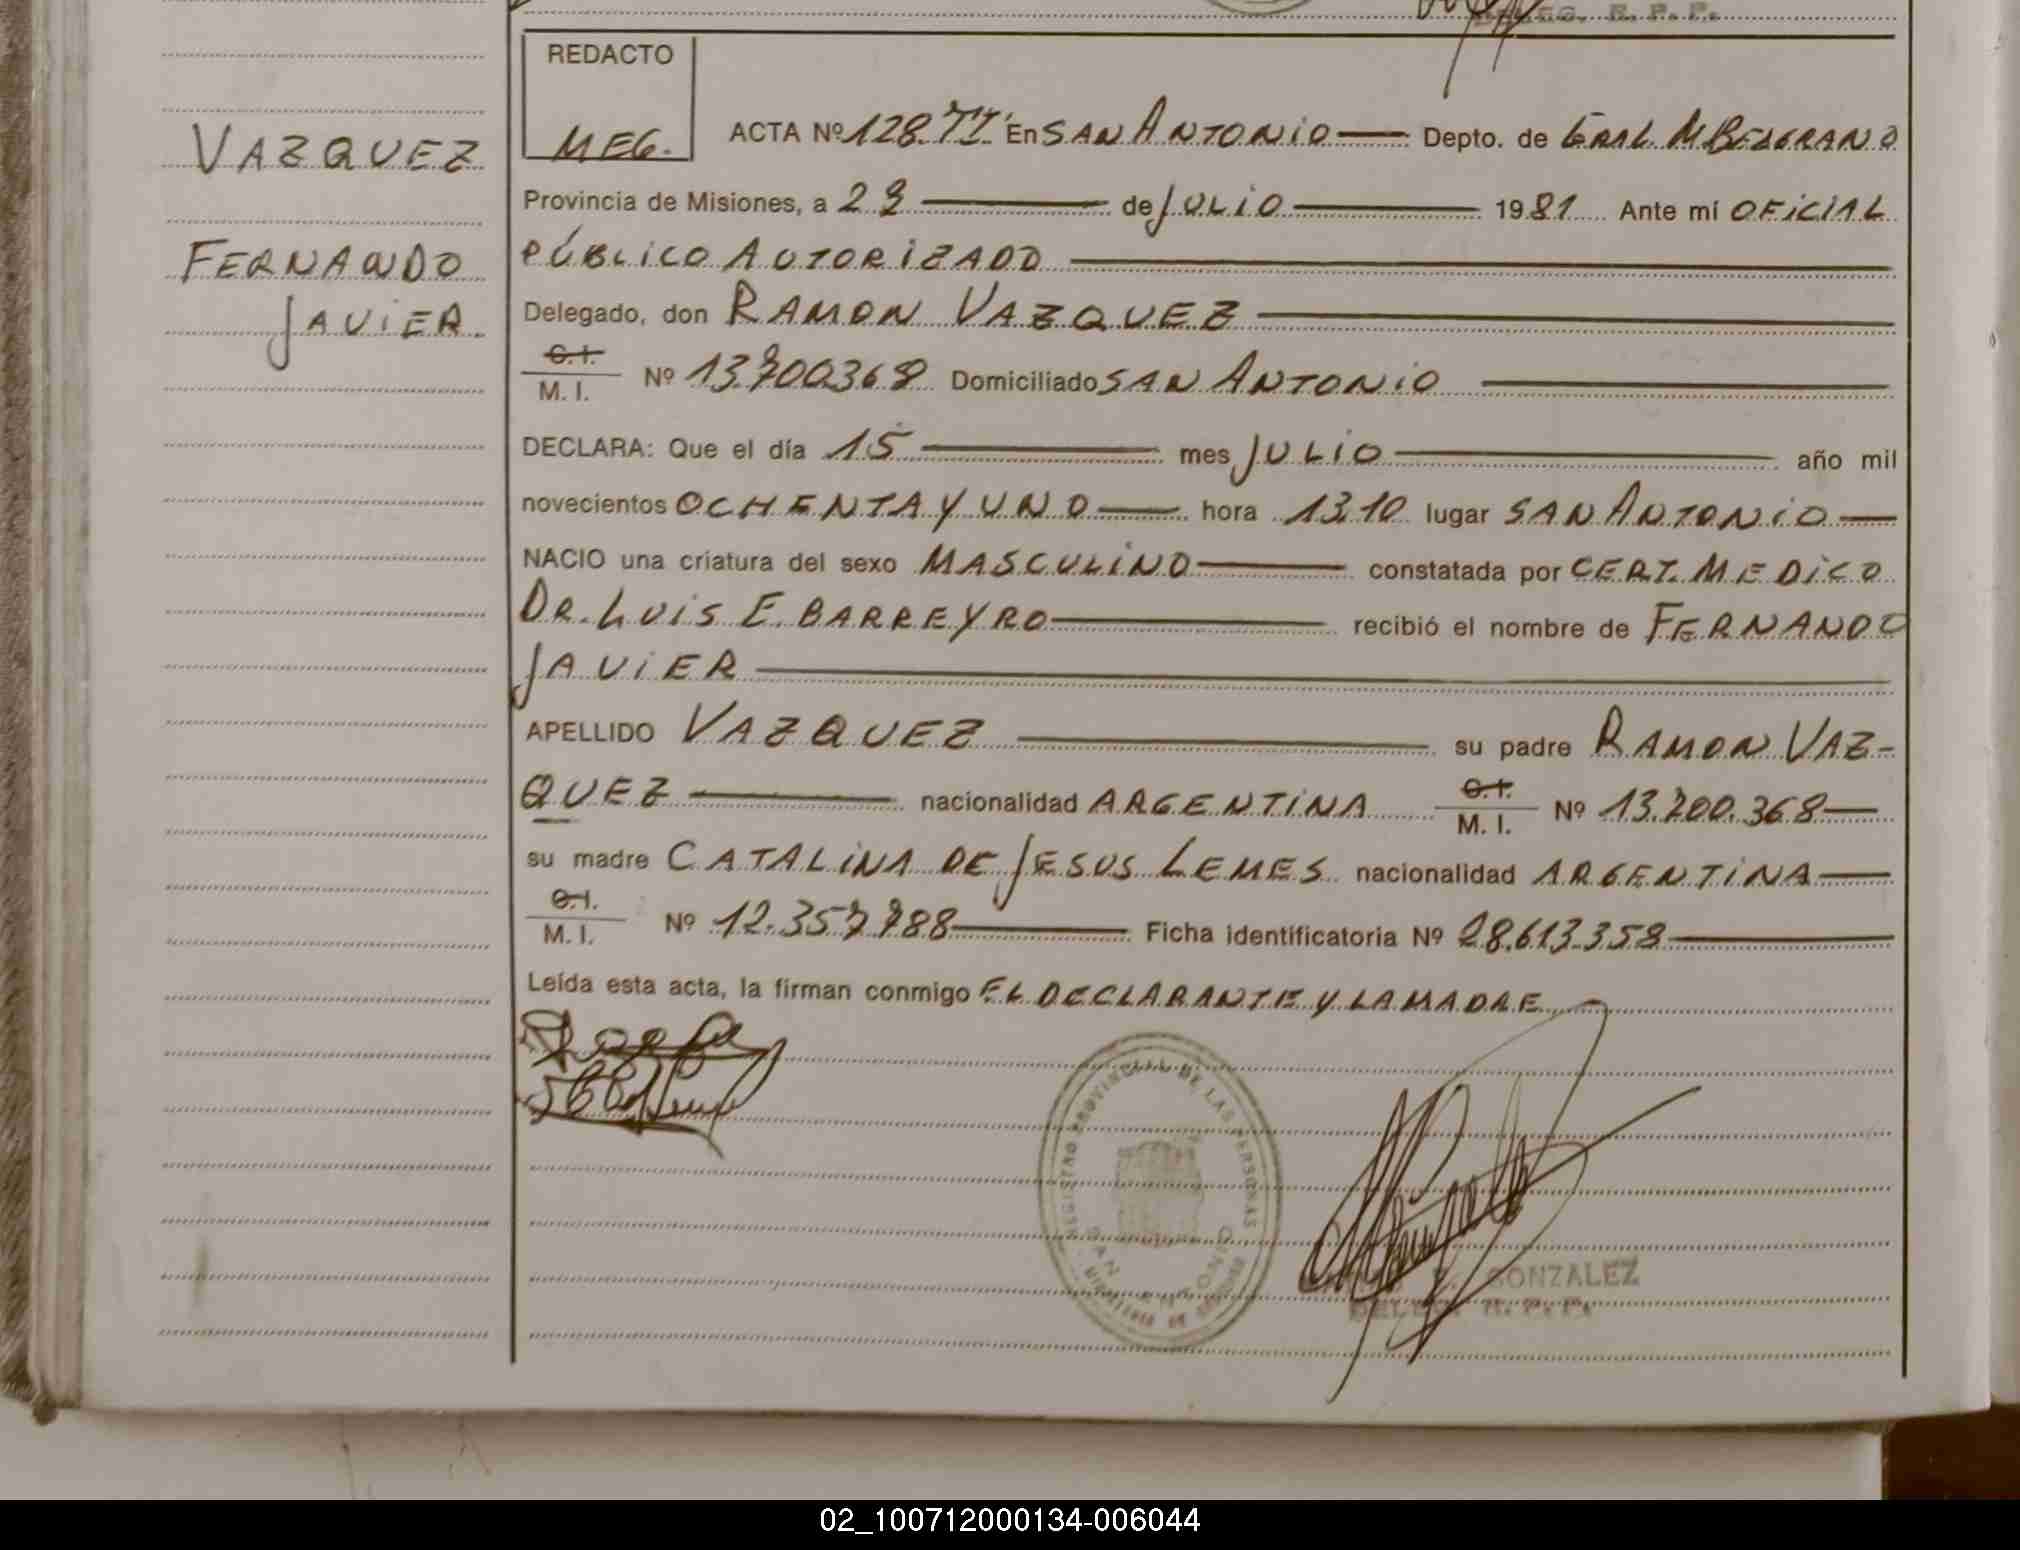 DELEG. R. P. P.
REDACTO
MEG.
ACTA Nº 128. TI. En SAN ANTONIO Depto. de GRAL. M BELGRANO
VAZQUEZ
Provincia de Misiones, a 29 de JULIO 1981 Ante mí OFICIAL
FERNANDO
PÚBLICO AUTORIZADO
JAVIER.
Delegado, don RAMON VAZQUEZ
C.I.
M. I. Nº 13.700.368 Domiciliado SAN ANTONIO
DECLARA: Que el día 15 mes JULIO año mil
novecientos OCHENTA Y UNO hora 13.10 lugar SAN ANTONIO
NACIO una criatura del sexo MASCULINO constatada por CERT. MEDICO
DR. LUIS E. BARREYRO recibió el nombre de FERNANDO
JAVIER
APELLIDO VAZQUEZ su padre RAMON VAZ-
QUEZ nacionalidad ARGENTINA C.I. M. I. Nº 13.700.368
su madre CATALINA DE JESUS LEMES nacionalidad ARGENTINA
C.I.
M. I. Nº 12.357.788 Ficha identificatoria Nº 28.613.358
Leída esta acta, la firman conmigo EL DECLARANTE Y LA MADRE
REGISTRO PROVINCIAL DE LAS PERSONAS
SAN ANTONIO
GONZALEZ
DELEG. R. P. P.
02_100712000134-006044